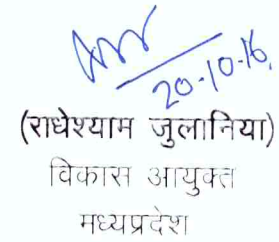 20-10-16
(राधेश्याम जुलानिया)
विकास आयुक्त
मध्यप्रदेश